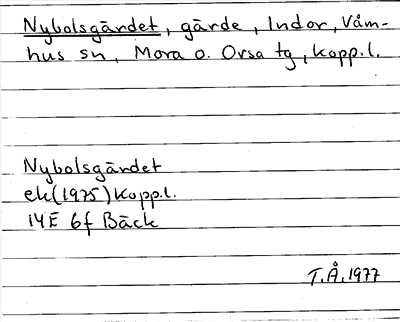 Nybolsgärdet, gärde, Indor, Våm-
hus sn, Mora o. Orsa tg, Kopp.l.
Nybolsgärdet
ek(1975)Kopp.l.
14E 6f Bäck
T.Å.1977